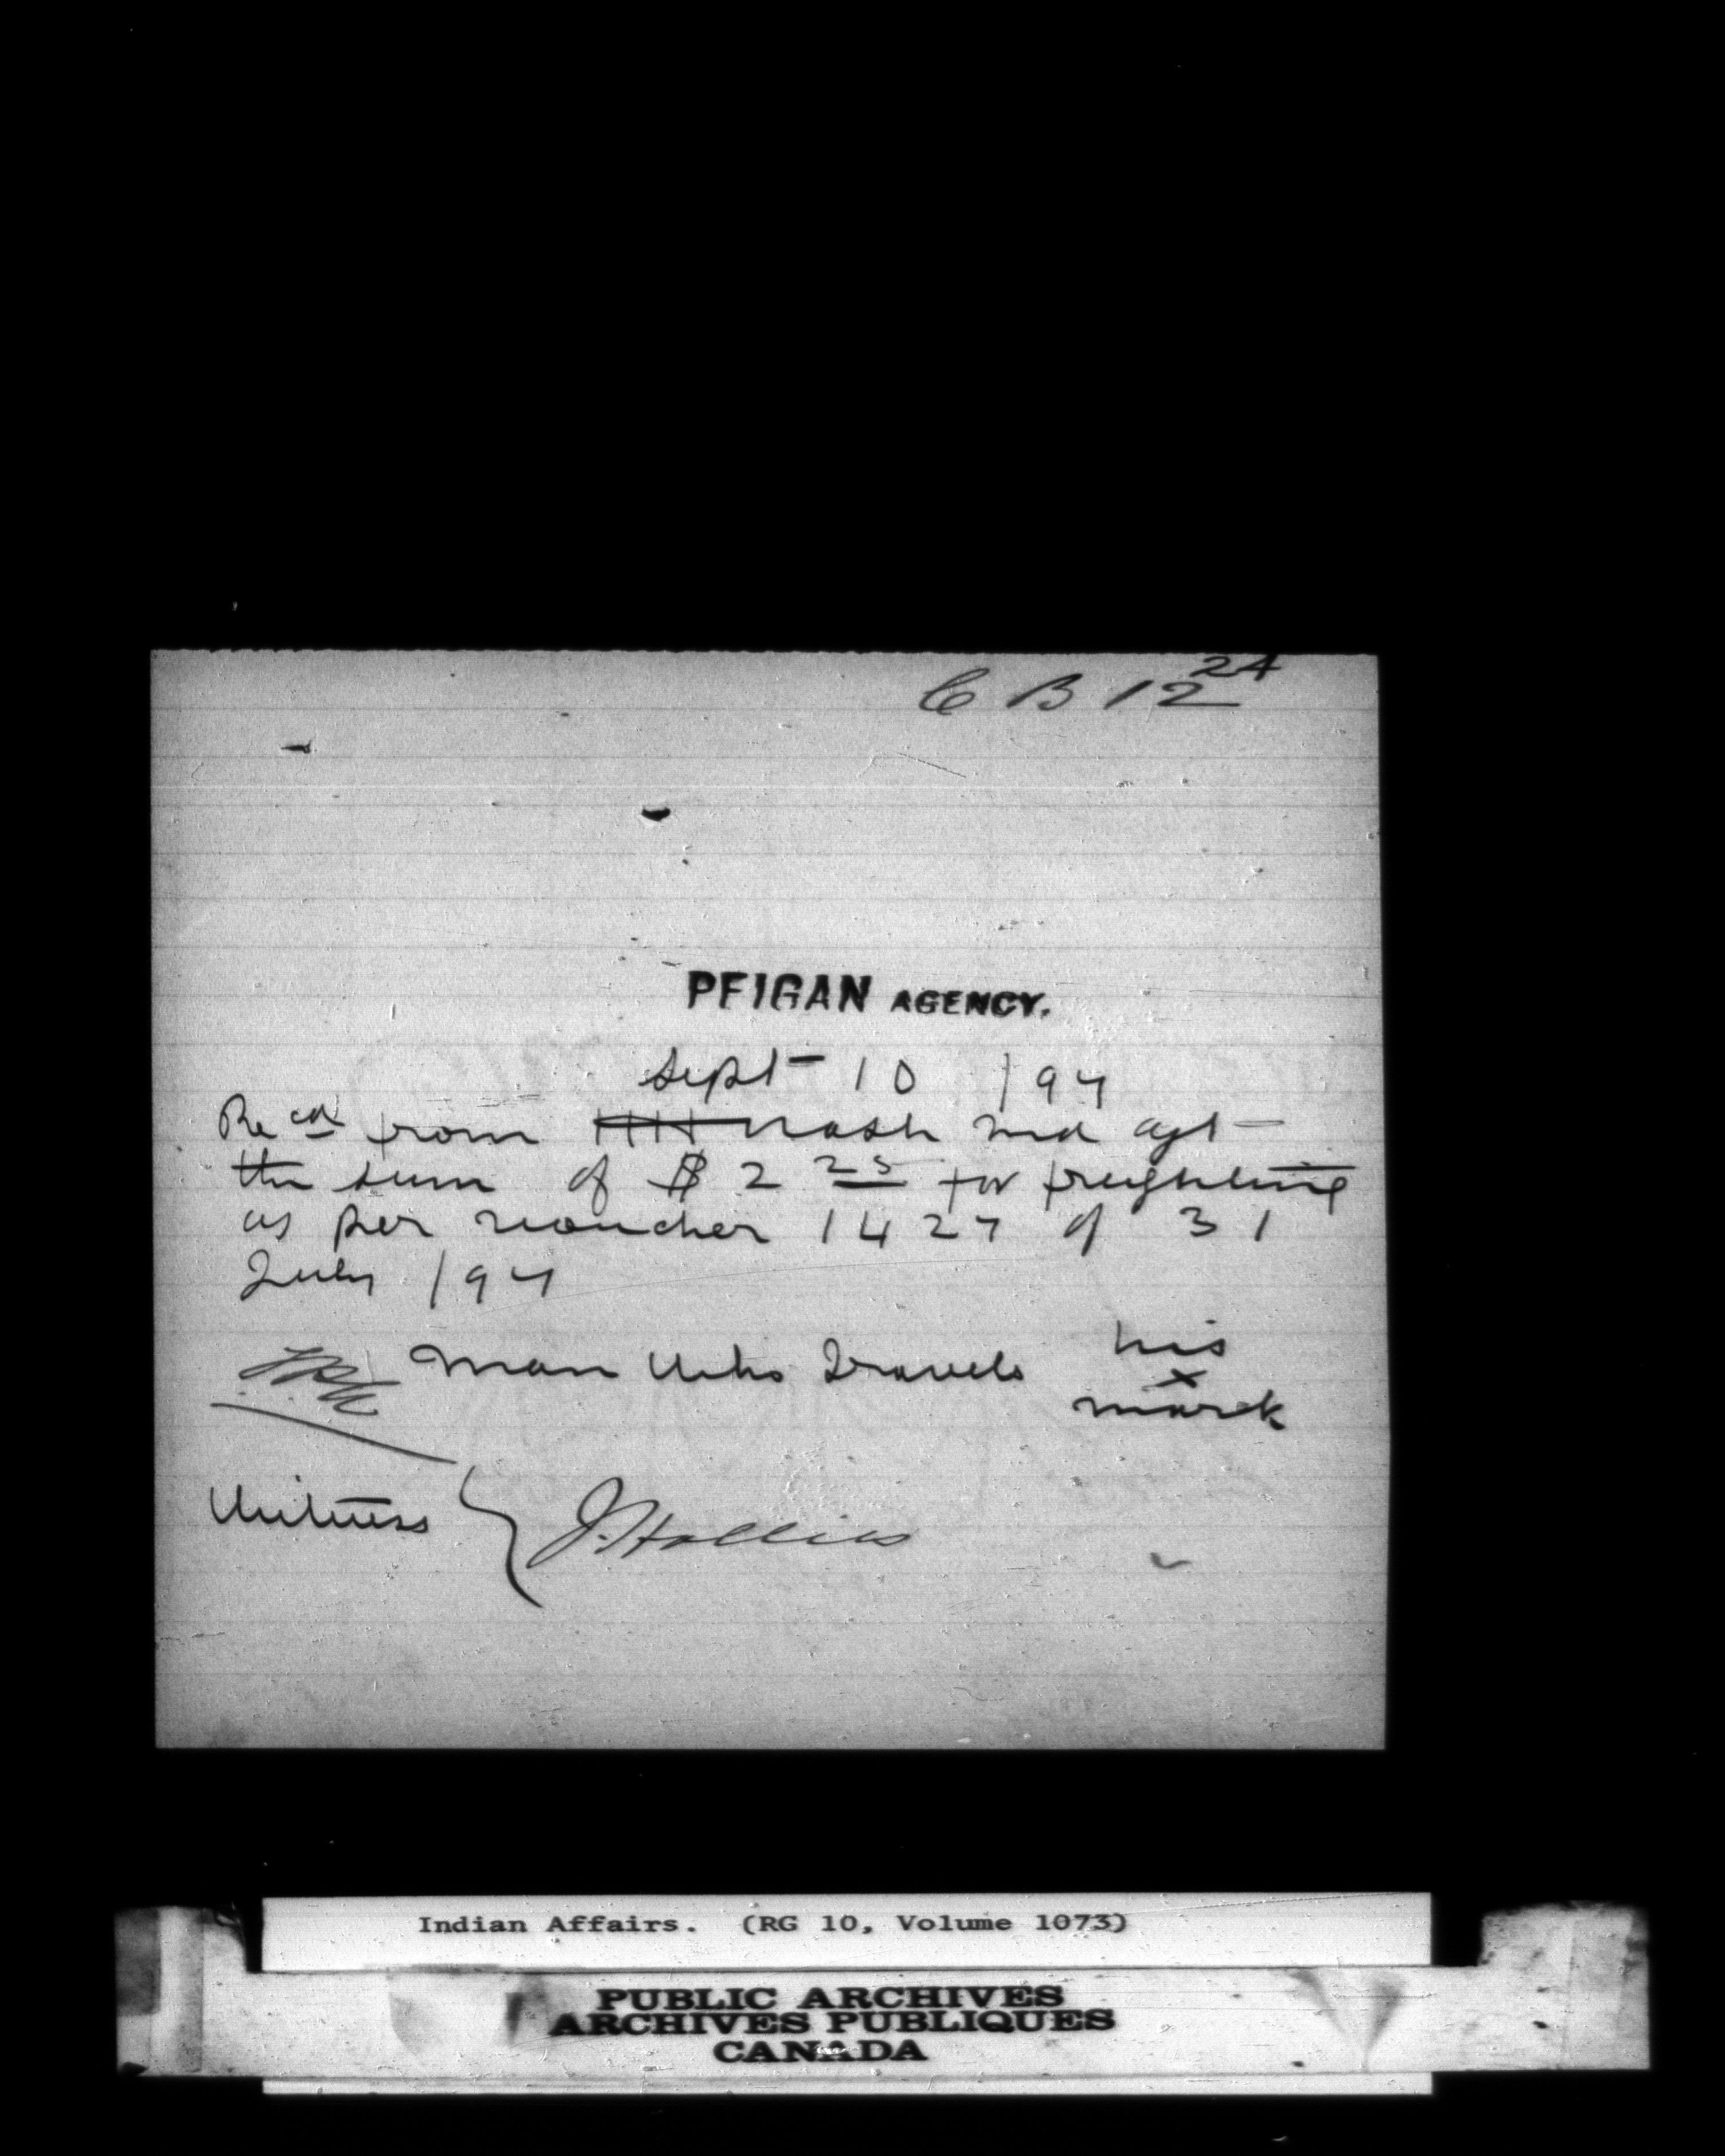 C B 12 24
PEIGAN AGENCY.
Sept 10 /94
Recd from HH Nash Ind agt
the sum of $ 2 25 for freighting
as per voucher 1427 of 31
July /94
Man Who Travels his x mark
Witness } J. Hollies
Indian Affairs. (RG 10, Volume 1073)
PUBLIC ARCHIVES
ARCHIVES PUBLIQUES
CANADA